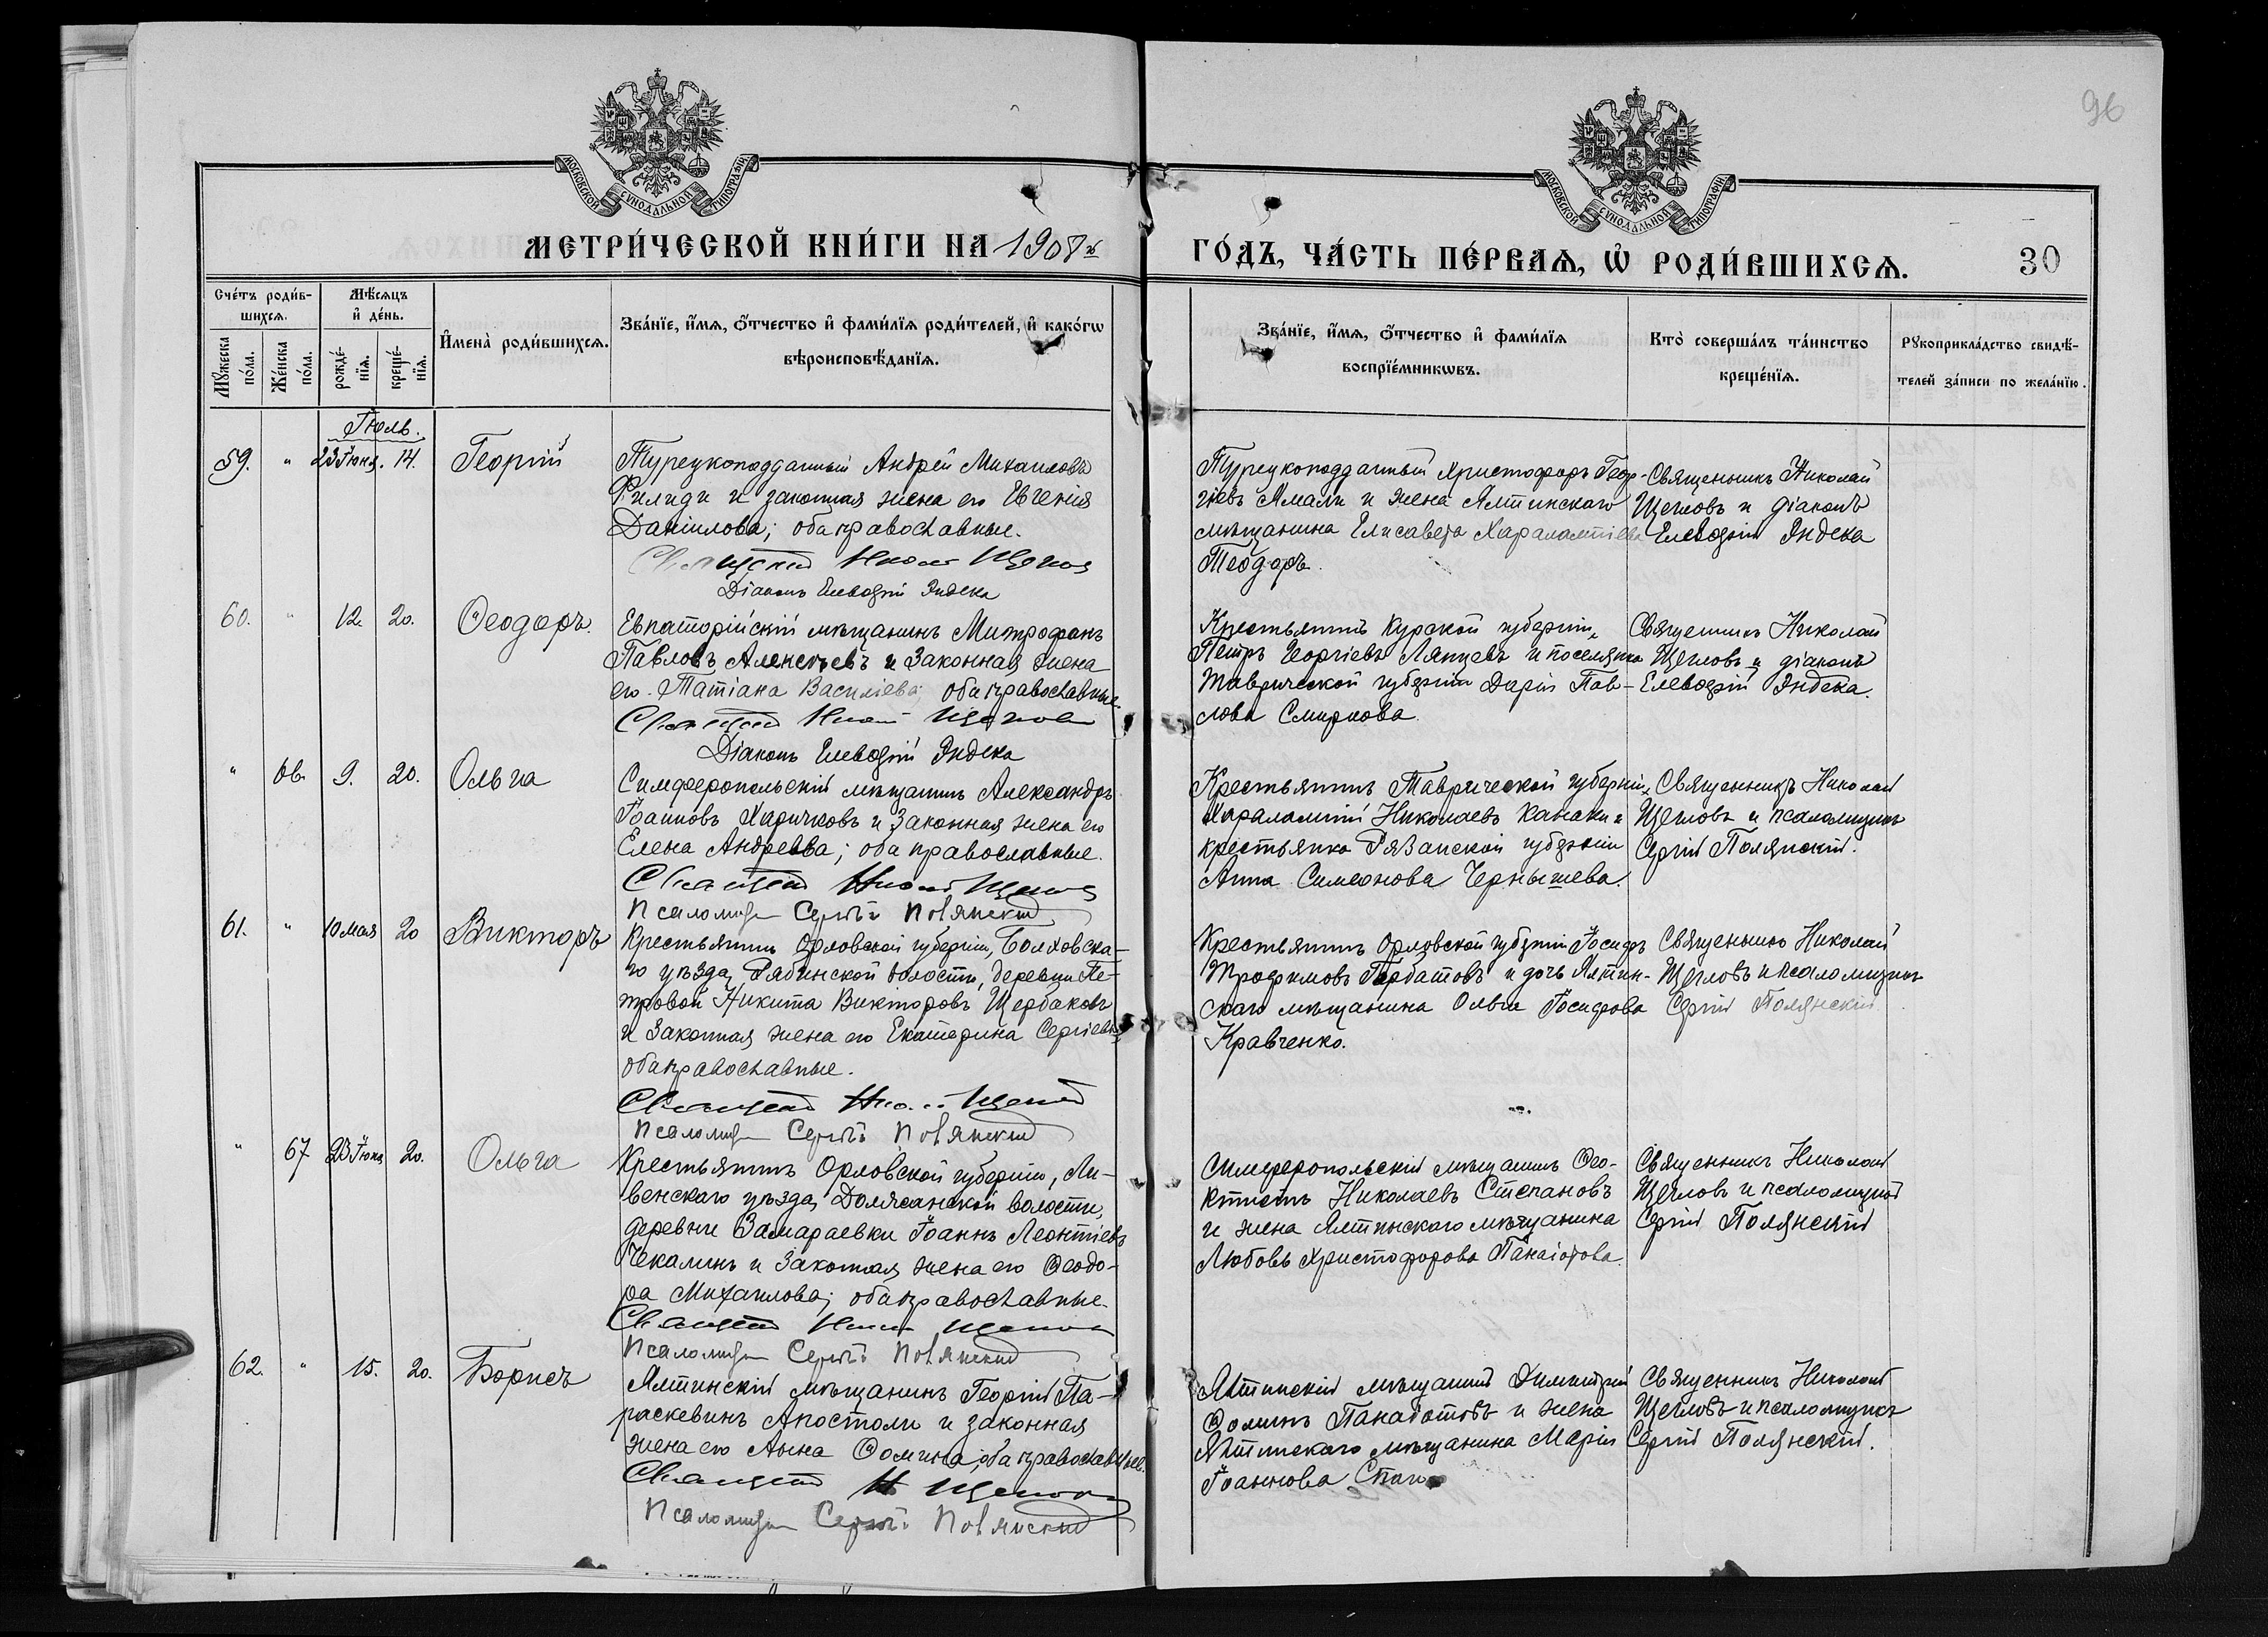 96
МОСКОВСКОЙ СУНОДАЛЬНОЙ ТИПОГРАФІИ
МОСКОВСКОЙ СУНОДАЛЬНОЙ ТИПОГРАФІИ
МЕТРИ́ЧЕСКОЙ КНИ́ГИ НА 1908й ГО́ДЪ, ЧА́СТЬ ПЕ́РВАѦ, Ѡ҆ РОДИ́ВШИХСѦ. 30
Сче́тъ роди́в-
шихсѧ.
Мꙋ́жеска по́ла.
Же́нска по́ла.
Мѣ́сѧцъ
и҆ де́нь.
рожде́-
нїѧ.
креще́-
нїѧ.
И҆мена̀ роди́вшихсѧ.
Зва́нїе, и҆́мѧ, ѻ҆́тчество и҆ фами́лїѧ роди́телей, и҆ како́гѡ
вѣроисповѣ́данїѧ.
Зва́нїе, и҆́мѧ, ѻ҆́тчество и҆ фами́лїѧ
воспрїе́мникѡвъ.
Кто̀ соверша́лъ та́инство
креще́нїѧ.
Рꙋкоприкла́дство свидѣ́-
телей за́писи по жела́нїю.
Іюль.
59. " 23 Іюня. 14. Георгій
Турецкоподданный Андрей Михаиловъ
Филиди и законная жена его Евгенія
Даніилова; оба православные.
Священникъ Николай Щегловъ
Діаконъ Елевѳерій Эндека
Турецкоподданный Христофоръ Геор-
гіевъ Ямали и жена Ялтинскаго
мѣщанина Елисавета Харалампіева
Теодоръ.
Священникъ Николай
Щегловъ и діаконъ
Елевѳерій Эндека
60. " 12. 20. Ѳеодоръ.
Евпаторійскій мѣщанинъ Митрофанъ
Павловъ Алексѣевъ и законная жена
его Татіана Василіева; оба православные.
Священникъ Николай Щегловъ
Діаконъ Елевѳерій Эндека
Крестьянинъ Курской губерніи,
Петръ Георгіевъ Ляпцевъ и поселянка
Таврической губерніи Дарія Пав-
лова Смирнова.
Священникъ Николай
Щегловъ и діаконъ
Елевѳерій Эндека.
" 66. 9. 20. Ольга
Симферопольскій мѣщанинъ Александръ
Іоанновъ Харичковъ и законная жена его
Елена Андреева; оба православные.
Священникъ Николай Щегловъ
Псаломщикъ Сергій Полянскій
Крестьянинъ Таврической губерніи,
Харалампій Николаевъ Канаки и
крестьянка Рязанской губерніи
Анна Симеонова Чернышева.
Священникъ Николай
Щегловъ и псаломщикъ
Сергій Полянскій.
61. " 10 мая 20 Викторъ
Крестьянинъ Орловской губерніи, Болховска-
го уѣзда, Рябинской волости, деревни Пе-
тровой Никита Викторовъ Щербаковъ
и законная жена его Екатерина Сергіева,
оба православные.
Священникъ Николай Щегловъ
Псаломщикъ Сергій Полянскій
Крестьянинъ Орловской губерніи Іосифъ
Трофимовъ Горбатовъ и дочь Ялтин-
скаго мѣщанина Ольга Іосифова
Кравченко.
Священникъ Николай
Щегловъ и псаломщикъ
Сергій Полянскій
" 67 23 Іюня 20. Ольга
Крестьянинъ Орловской губерніи, Ли-
венскаго уѣзда, Должанской волости,
деревни Замараевки Іоаннъ Леонтіевъ
Чекалинъ и законная жена его Ѳеодо-
ра Михаилова; оба православные.
Священникъ Николай Щегловъ
Псаломщикъ Сергій Полянскій
Симферопольскій мѣщанинъ Ѳео-
ктистъ Николаевъ Степановъ
и жена Ялтинскаго мѣщанина
Любовь Христофорова Панаіотова.
Священникъ Николай
Щегловъ и псаломщикъ
Сергій Полянскій
62. " 15. 20. Борисъ
Ялтинскій мѣщанинъ Георгій Па-
раскевинъ Апостоли и законная
жена его Анна Ѳомина; оба православные.
Священникъ Н Щегловъ
Псаломщикъ Сергій Полянскій
Ялтинскій мѣщанинъ Димитрій
Ѳоминъ Панаіотовъ и жена
Ялтинскаго мѣщанина Марія
Іоаннова
Священникъ Николай
Щегловъ и псаломщикъ
Сергій Полянскій.